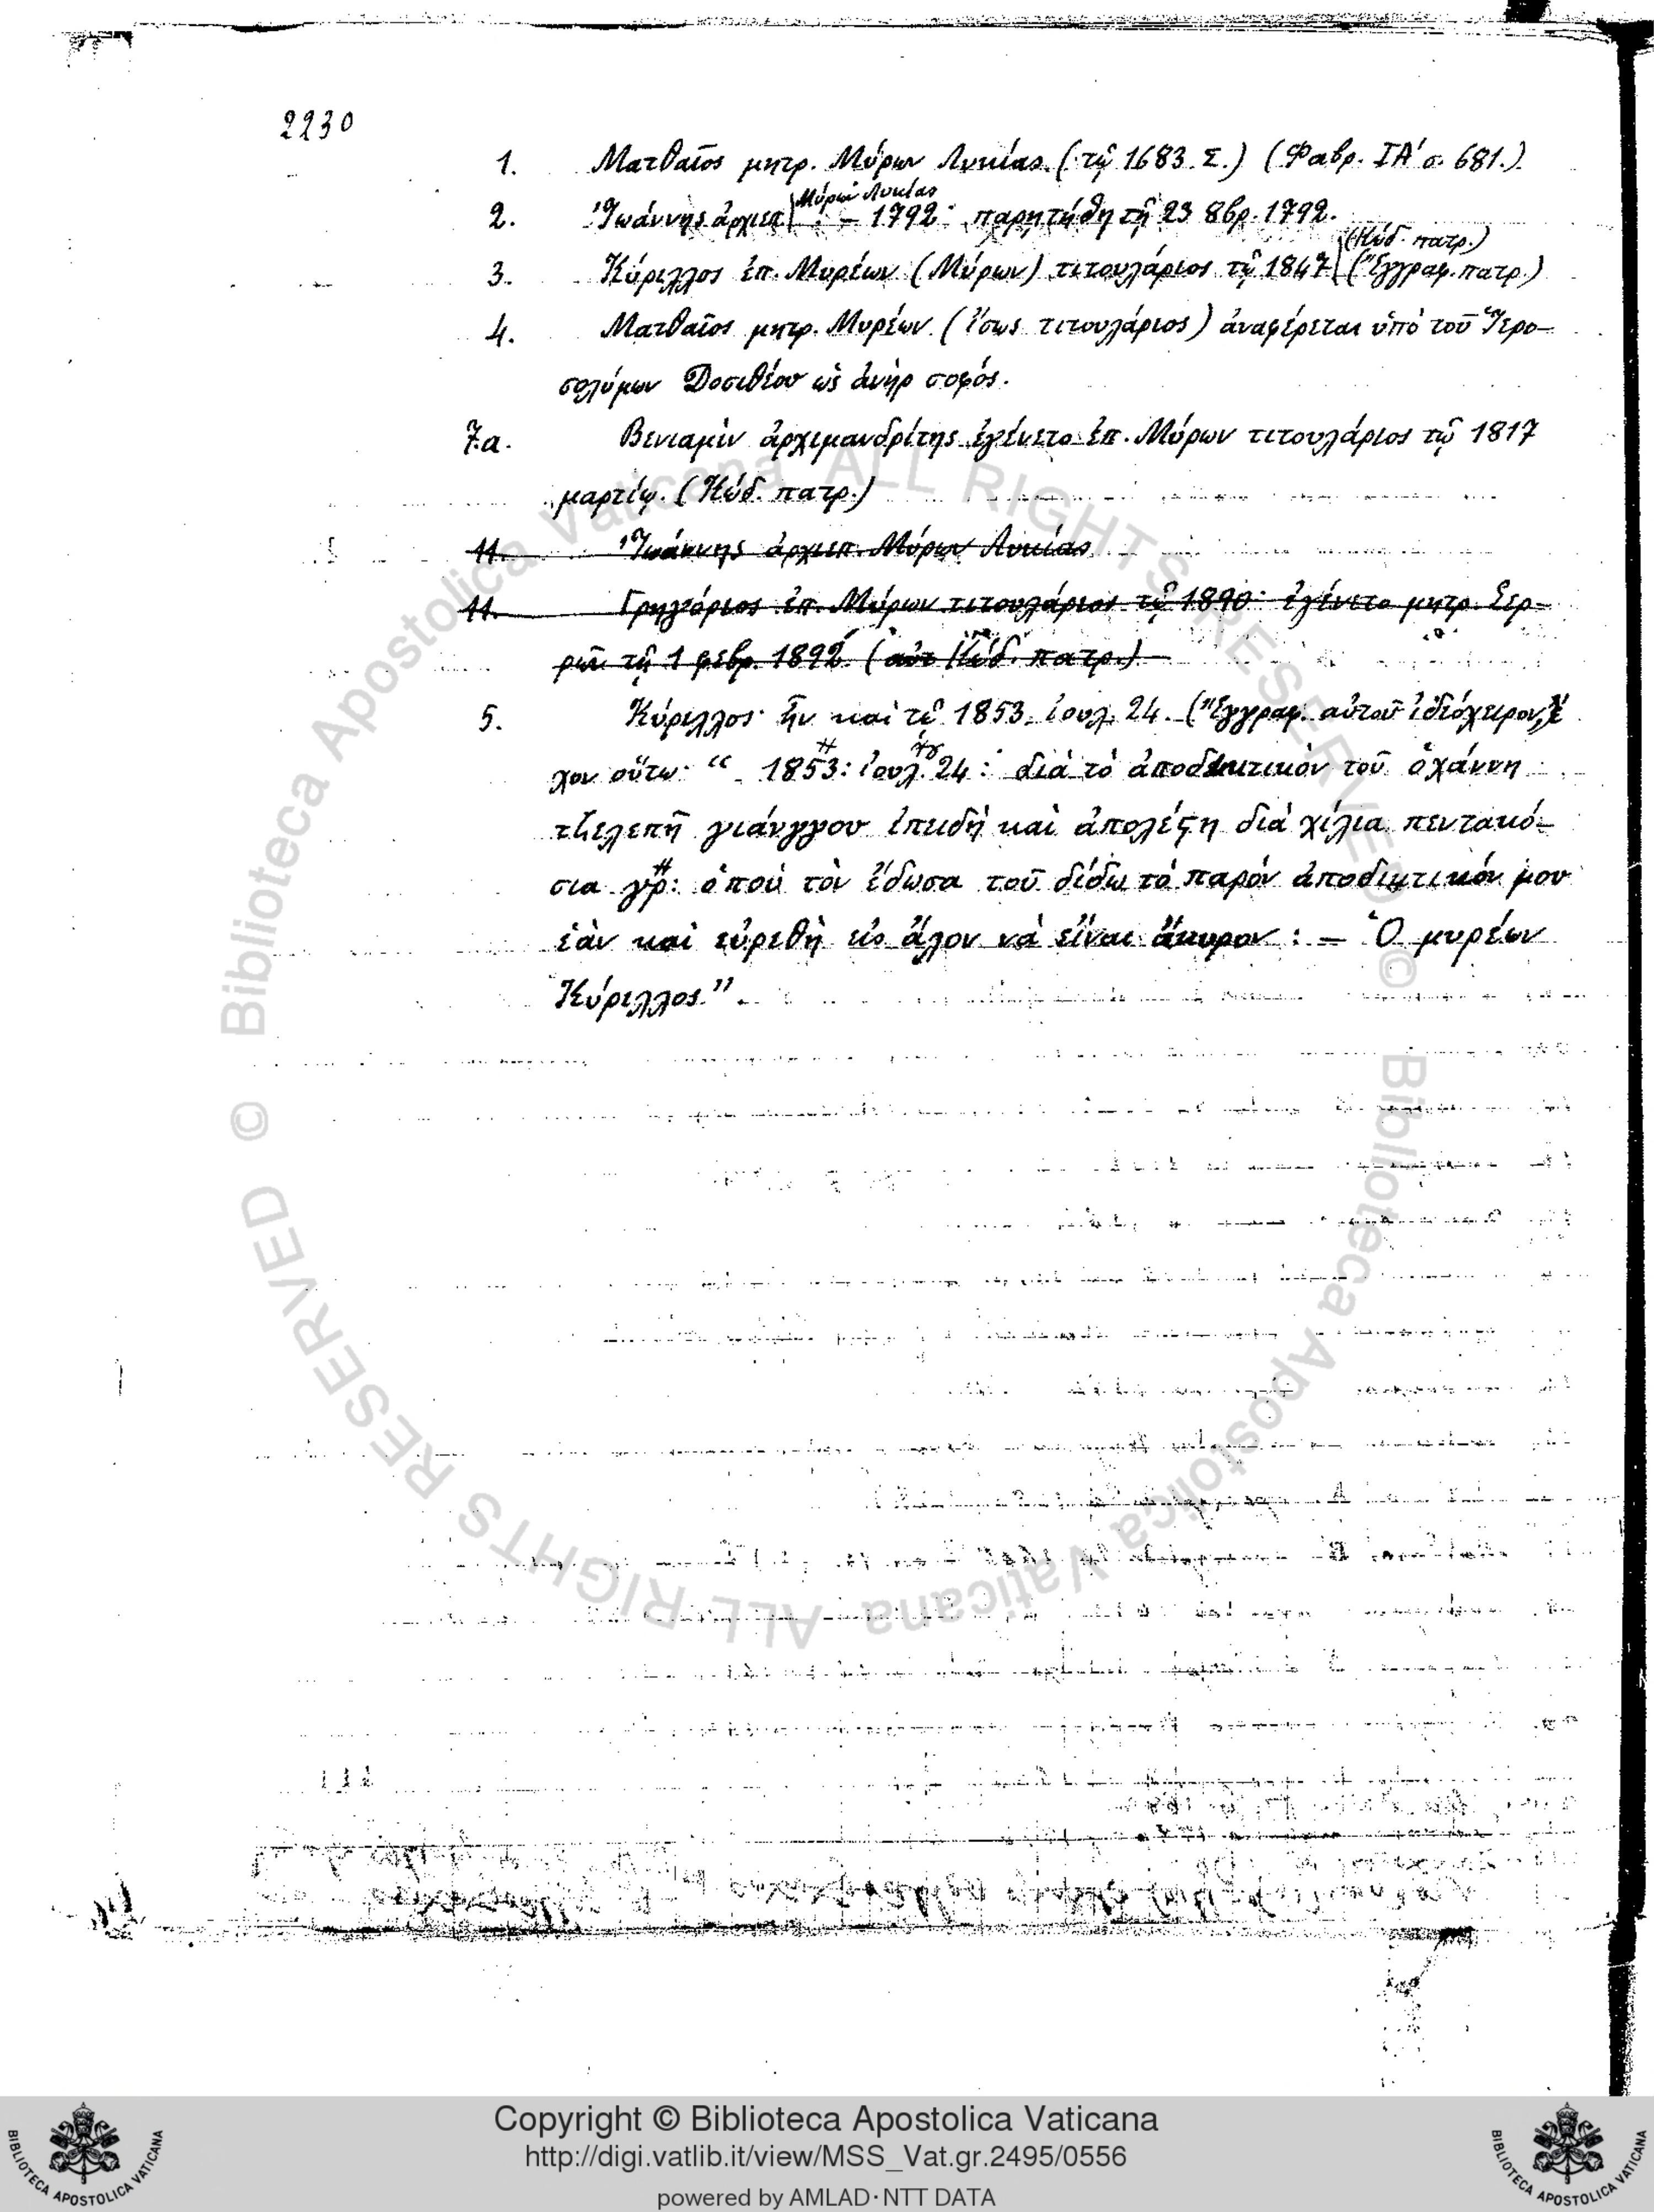 2230
1. Ματθαῖος μητρ. Μύρων Λυκίας. (τῷ 1683. Σ.) (Φαβρ. ΙΑ΄ σ. 681.)
Μύρων Λυκίας
2. Ἰωάννης ἀρχιεπ : – 1792· παρητήθη τῇ 23 8βρ. 1792.
(Κώδ. πατρ.)
3. Κύριλλος ἐπ. Μυρέων (Μύρων) τιτουλάριος τῷ 1847 (Ἔγγραφ. πατρ.)
4. Ματθαῖος μητρ. Μυρέων (ἴσως τιτουλάριος) ἀναφέρεται ὑπὸ τοῦ Ἱερο–
σολύμων Δοσιθέου ὡς ἀνὴρ σοφός.
7.α. Βενιαμὶν ἀρχιμανδρίτης ἐγένετο ἐπ. Μύρων τιτουλάριος τῷ 1817
μαρτίῳ. (Κώδ. πατρ.)
11. Ἰωάννης ἀρχιεπ. Μύρων Λυκίας
11. Γρηγόριος ἐπ. Μύρων τιτουλάριος τῷ 1890· ἐγένετο μητρ. Σερ–
ρῶν τῇ 1 φεβρ. 1892. ( Κώδ. πατρ.)
5. Κύριλλος· ἦν καὶ τῷ 1853. ἰουλ. 24. (Ἔγγραφ. αὐτοῦ ἰδιόχειρον, ἔ
χον οὕτω· “ 1853: ἰουλ. 24: διὰ τὸ ἀποδεικτικὸν τοῦ ὀχάννη
τζελεπῆ γιάνγγου ἐπειδὴ καὶ ἀπολέςη διὰ χίλια πεντακό–
σια γρ: ὁποὺ τὸν ἔδωσα τοῦ δίδω τὸ παρόν ἀποδικτικόν μου
ἐὰν καὶ εὑρεθὴ εἰς ἄλον νὰ εἶναι ἄκυρον: – Ὁ μυρέων
Κύριλλος.”
© Biblioteca Apostolica Vaticana ALL RIGHTS RESERVED
© Biblioteca Apostolica Vaticana ALL RIGHTS RESERVED
BIBLIOTECA APOSTOLICA VATICANA
Copyright © Biblioteca Apostolica Vaticana
http://digi.vatlib.it/view/MSS_Vat.gr.2495/0556
powered by AMLAD·NTT DATA
BIBLIOTECA APOSTOLICA VATICANA